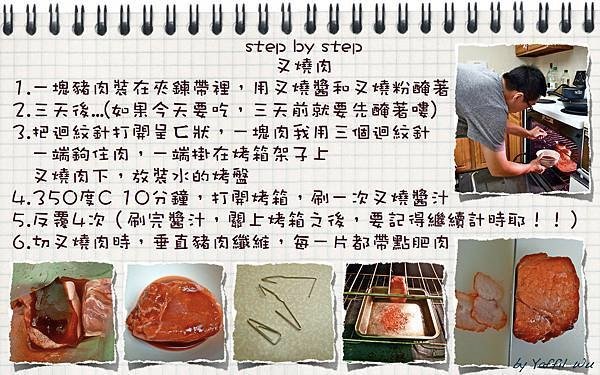 step by step
叉燒肉
1.一塊豬肉裝在夾鍊帶裡，用叉燒醬和叉燒粉醃著
2.三天後...(如果今天要吃，三天前就要先醃著嘍)
3.把迴紋針打開呈ㄈ狀，一塊肉我用三個迴紋針
一端鉤住肉，一端掛在烤箱架子上
叉燒肉下，放裝水的烤盤
4.350度C 10分鐘，打開烤箱，刷一次叉燒醬汁
5.反覆4次（刷完醬汁，關上烤箱之後，要記得繼續計時耶！！）
6.切叉燒肉時，垂直豬肉纖維，每一片都帶點肥肉
by Yaffil Wu